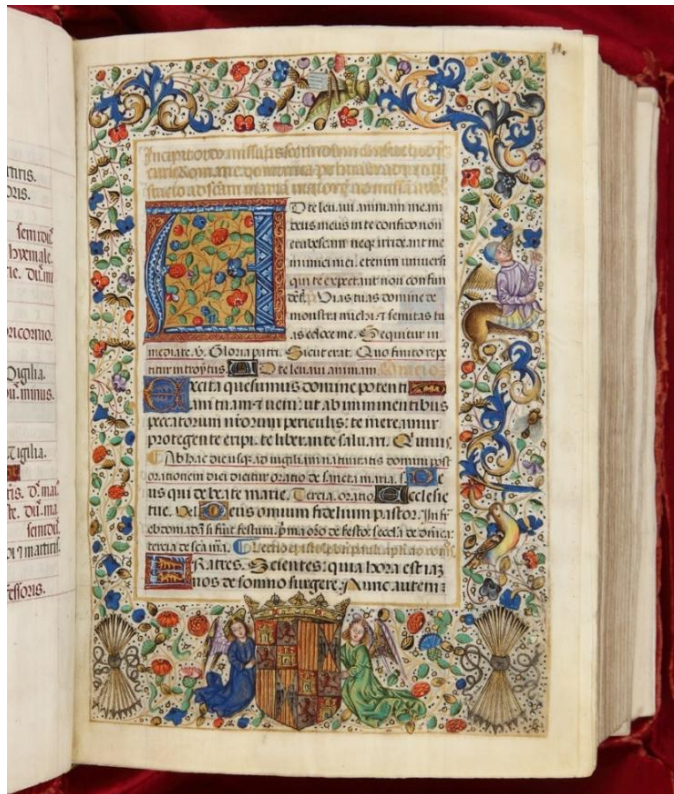 tiris.
oris.
semidu
hyemale.
rie. du. mi
pricornio.
Vigilia.
du. minus.
Vigilia.
ris. d. mai
ste. du. ma
semidu
martiris
fessoris.
Incipit ordo missalis secundum consuetudi
curie Romane. dominica prima de adventu
statio ad sanctam mariam maiorem ad missam intro
Ad te levavi animam meam
deus meus in te confido non
erubescam neque irrideant me
inimici mei. etenim universi
qui te expectant non confun
dent. Vias tuas domine de
monstra michi et semitas tu
as edoce me. Sequitur im
mediate. v. Gloria patri. Sicut erat. Quo finito repe
titur introytus. Ad te levavi animam. Oratio
Excita quesumus domine poten
tiam tuam et veni: ut ab imminentibus
peccatorum nrorum periculis: te mereamur
protegente eripi. te liberante salvari. Qui vivis.
Ab hac die usque ad vigiliam nativitatis domini post
orationem diei dicitur oratio de sancta maria. De
us qui de beate marie. Tercia oratio Ecclesie
tue. Deus omnium fidelium pastor.
tercia de sca ma. Lectio epistole
Fratres. Scientes: quia hora est iam
nos de somno surgere. Nunc autem